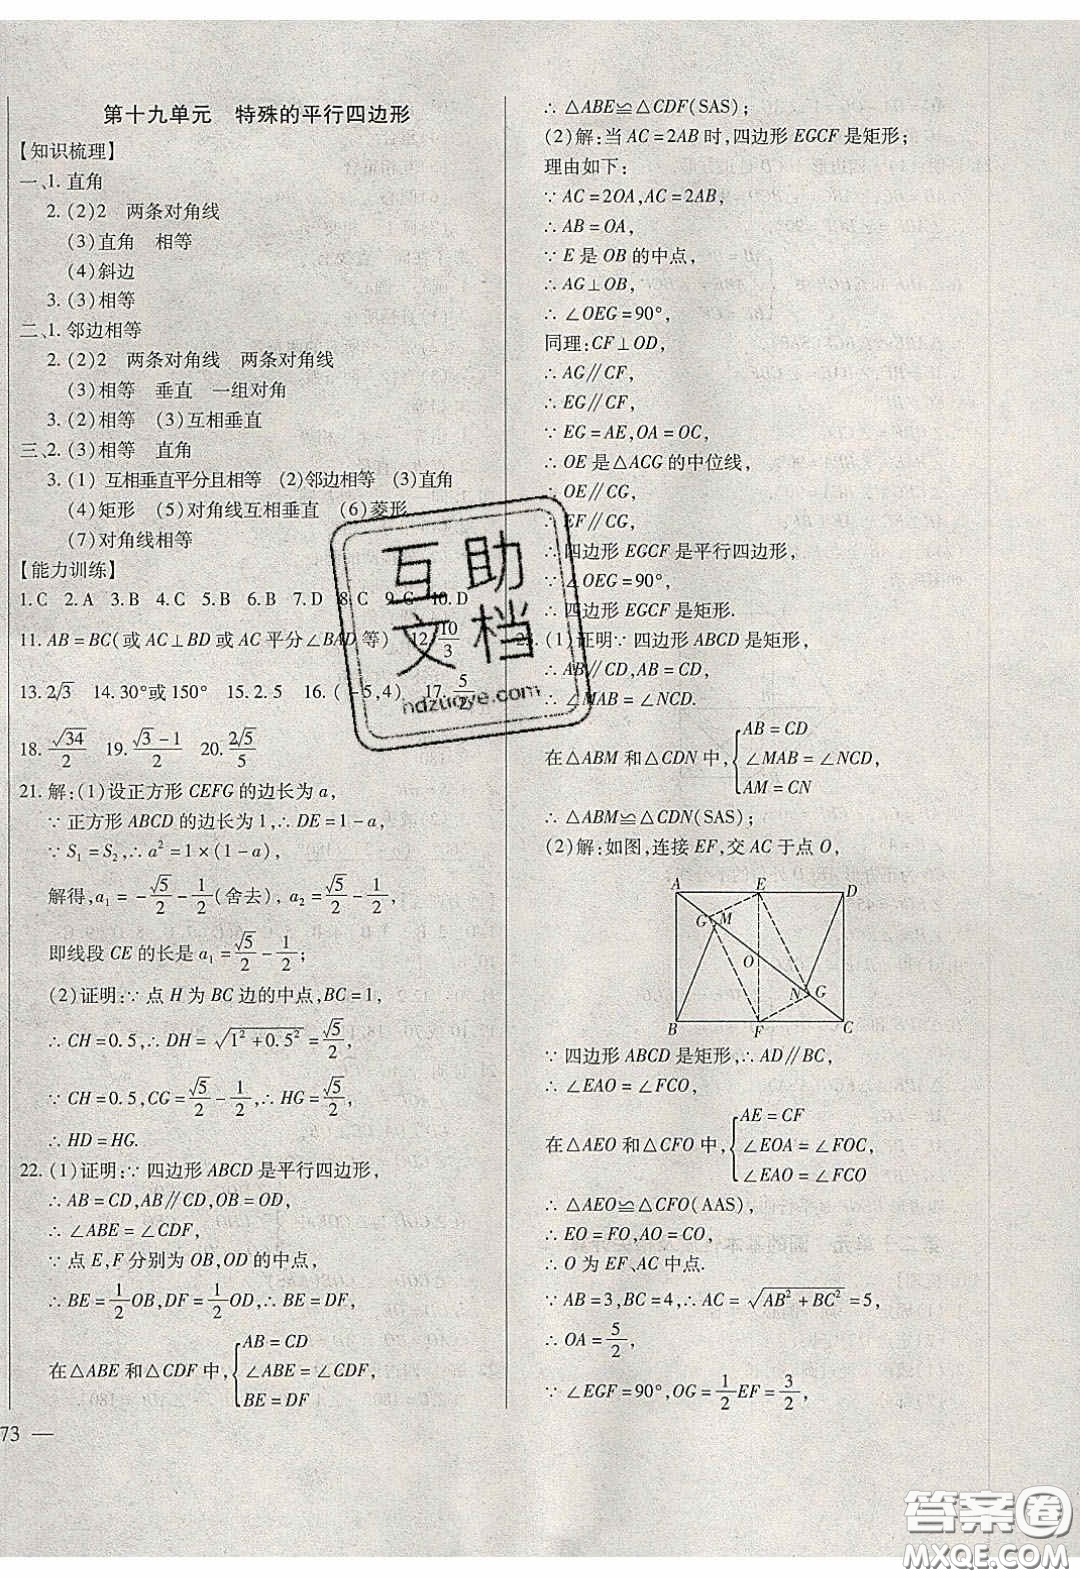 第十九单元　特殊的平行四边形
【知识梳理】
一、1. 直角
2. (2)2　两条对角线
(3)直角　相等
(4)斜边
3. (3)相等
二、1. 邻边相等
2. (2)2　两条对角线　两条对角线
(3)相等　垂直　一组对角
3. (2)相等　(3)互相垂直
三、2. (3)相等　直角
3. (1) 互相垂直平分且相等　(2)邻边相等　(3)直角
(4)矩形　(5)对角线互相垂直　(6)菱形
(7)对角线相等
【能力训练】
1. C　2. A　3. B　4. C　5. B　6. B　7. D　8. C　9. C　10. D
11. AB=BC(或 AC⊥BD 或 AC 平分∠BAD 等)　12. 10/3
13. 2√3　14. 30°或 150°　15. 2.5　16. (-5,4)　17. 5/2
18. √34/2　19. (√3-1)/2　20. 2√5/5
21. 解:(1)设正方形 CEFG 的边长为 a,
∵ 正方形 ABCD 的边长为 1,∴ DE=1-a,
∵ S₁=S₂,∴ a²=1×(1-a),
解得,a₁=-√5/2-1/2(舍去), a₂=√5/2-1/2,
即线段 CE 的长是 a₁=√5/2-1/2;
(2)证明:∵ 点 H 为 BC 边的中点,BC=1,
∴ CH=0.5,∴ DH=√(1²+0.5²)=√5/2,
∵ CH=0.5,CG=√5/2-1/2,∴ HG=√5/2,
∴ HD=HG.
22. (1)证明:∵ 四边形 ABCD 是平行四边形,
∴ AB=CD,AB∥CD,OB=OD,
∴ ∠ABE=∠CDF,
∵ 点 E,F 分别为 OB,OD 的中点,
∴ BE=1/2OB,DF=1/2OD,∴ BE=DF,
在△ABE 和△CDF 中,{AB=CD
∠ABE=∠CDF,
BE=DF
73 —
∴ △ABE≌△CDF(SAS);
(2)解:当 AC=2AB 时,四边形 EGCF 是矩形;
理由如下:
∵ AC=2OA,AC=2AB,
∴ AB=OA,
∵ E 是 OB 的中点,
∴ AG⊥OB,
∴ ∠OEG=90°,
同理:CF⊥OD,
∴ AG∥CF,
∴ EG∥CF,
∵ EG=AE,OA=OC,
∴ OE 是△ACG 的中位线,
∴ OE∥CG,
∴ EF∥CG,
∴ 四边形 EGCF 是平行四边形,
∵ ∠OEG=90°,
∴ 四边形 EGCF 是矩形.
23. (1)证明∵ 四边形 ABCD 是矩形,
∴ AB∥CD,AB=CD,
∴ ∠MAB=∠NCD.
在△ABM 和△CDN 中,{AB=CD
∠MAB=∠NCD,
AM=CN
∴ △ABM≌△CDN(SAS);
(2)解:如图,连接 EF,交 AC 于点 O,
A E D
G M
O
N G
B F C
∵ 四边形 ABCD 是矩形,∴ AD∥BC,
∴ ∠EAO=∠FCO,
在△AEO 和△CFO 中,{AE=CF
∠EOA=∠FOC,
∠EAO=∠FCO
∴ △AEO≌△CFO(AAS),
∴ EO=FO,AO=CO,
∴ O 为 EF、AC 中点.
∵ AB=3,BC=4,∴ AC=√(AB²+BC²)=5,
∴ OA=5/2,
∵ ∠EGF=90°,OG=1/2EF=3/2,
互助
文档
hdzuoye.com
答案圈
MXQE.COM